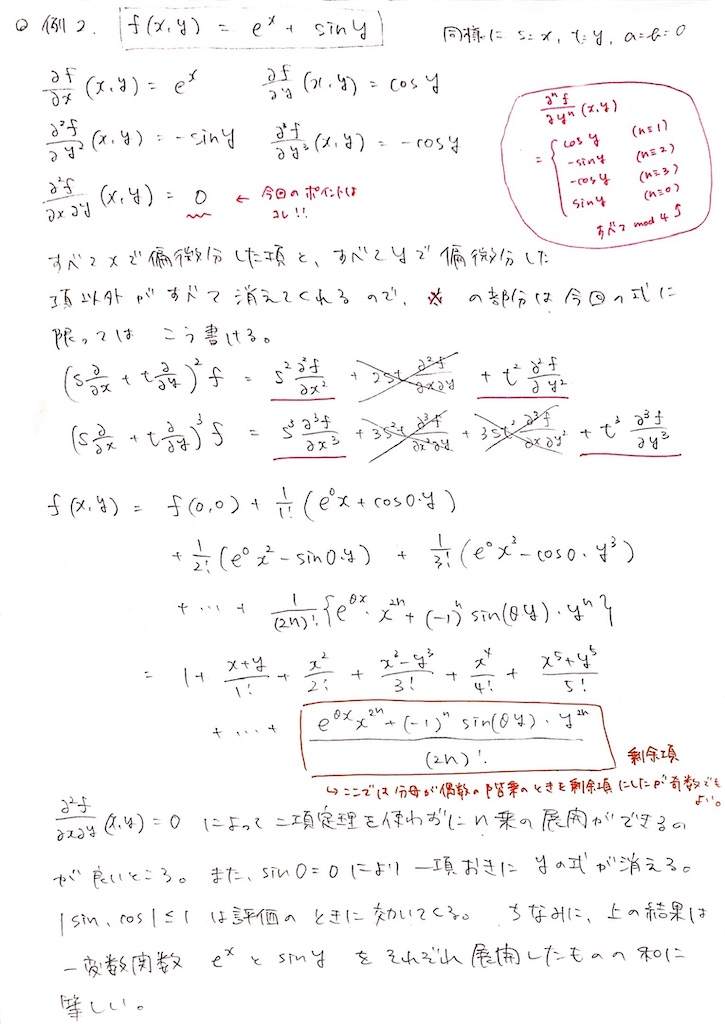 例2. f(x,y) = e^x + sin y 同様に s=x, t=y, a=b=0
∂f/∂x (x,y) = e^x ∂f/∂y (x,y) = cos y
∂²f/∂y² (x,y) = -sin y ∂³f/∂y³ (x,y) = -cos y
∂²f/∂x∂y (x,y) = 0 ← 今回のポイントはコレ!!
∂ⁿf/∂yⁿ (x,y)
= { cos y (n≡1)
-sin y (n≡2)
-cos y (n≡3)
sin y (n≡0)
すべて mod 4
すべて x で偏微分した項と、すべて y で偏微分した
項以外がすべて消えてくれるので、※ の部分は今回の式に
限っては こう書ける。
(s ∂/∂x + t ∂/∂y)² f = s² ∂²f/∂x² + 2st ∂²f/∂x∂y + t² ∂²f/∂y²
(s ∂/∂x + t ∂/∂y)³ f = s³ ∂³f/∂x³ + 3s²t ∂³f/∂x²∂y + 3st² ∂³f/∂x∂y² + t³ ∂³f/∂y³
f(x,y) = f(0,0) + 1/1! (e⁰x + cos0·y)
+ 1/2! (e⁰x² - sin0·y) + 1/3! (e⁰x³ - cos0·y³)
+ ⋯ + 1/(2n)! {e^θx · x^2n + (-1)^n sin(θy)·y^n}
= 1 + x+y/1! + x²/2! + x²-y³/3! + x⁴/4! + x⁵+y⁵/5!
+ ⋯ + e^θx x^2n + (-1)^n sin(θy)·y^2n / (2n)!
剰余項
↳ ここでは分母が偶数の階乗のときを剰余項にしたが奇数でもよい。
∂²f/∂x∂y (x,y) = 0 によって二項定理を使わずに n乗の展開ができるの
が良いところ。また、sin0=0 により 一項おきに yの式が消える。
|sin, cos| ≤ 1 は評価のときに効いてくる。 ちなみに、上の結果は
一変数関数 e^x と sin y をそれぞれ展開したものの和に
等しい。